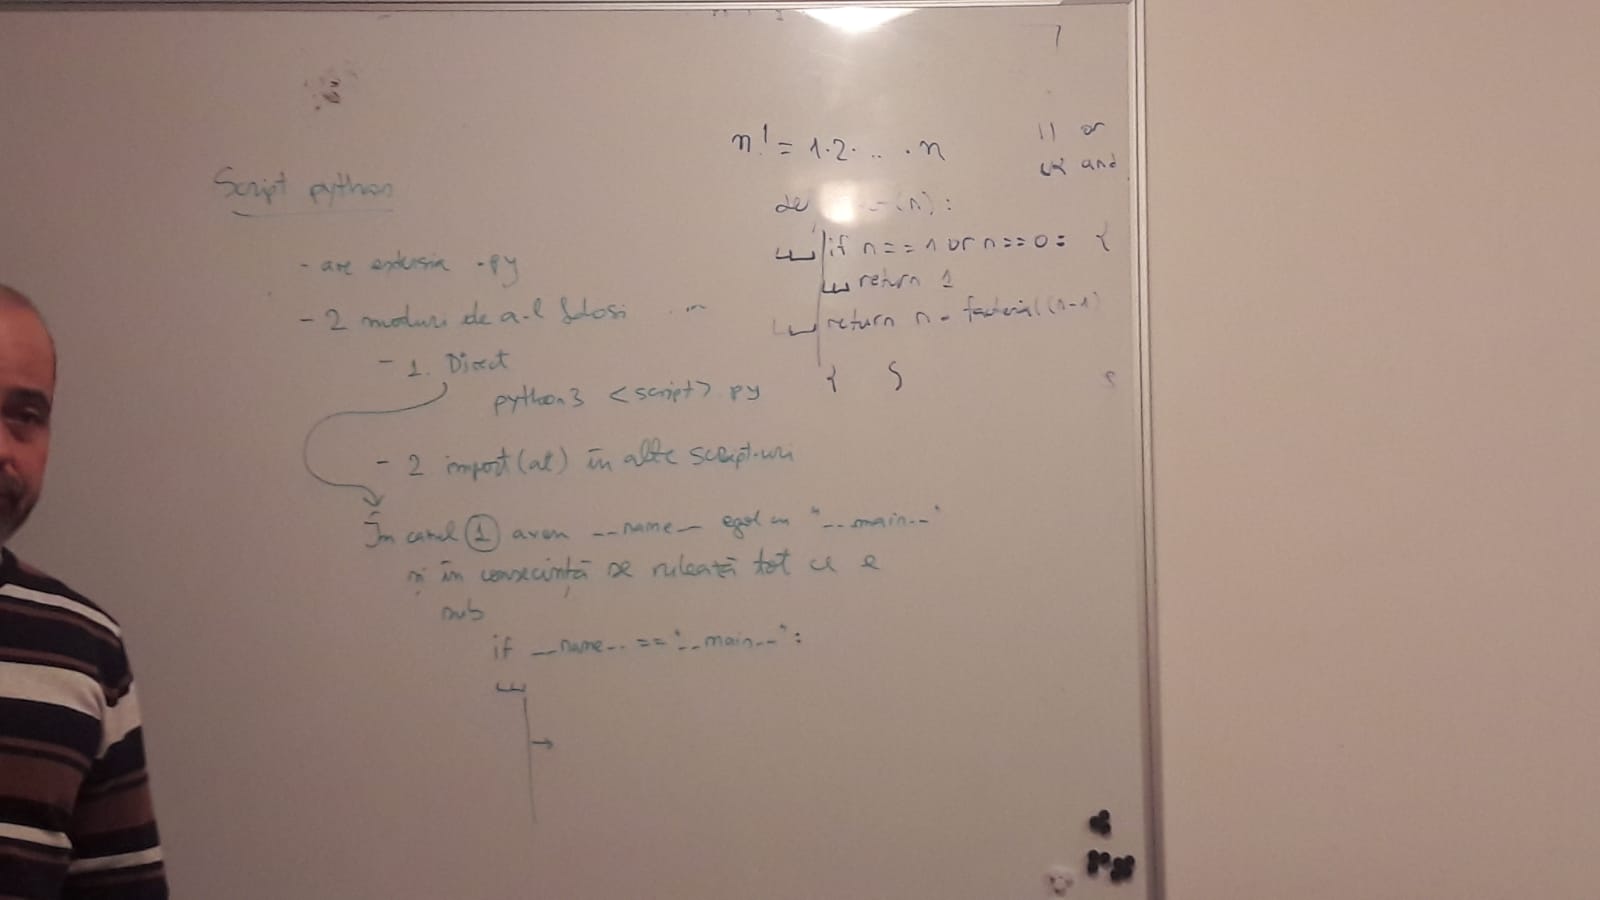 Script python
- are extensia .py
- 2 moduri de a-l folosi
- 1. Direct
python3 <script>.py
- 2 import(at) în alte script-uri
În cazul 1 avem __name__ egal cu "__main__"
și în consecință se rulează tot ce e
sub
if __name__ == "__main__":
n! = 1·2· .. ·n
|| or
&& and
def (n):
if n == 1 or n == 0: {
return 1
return n * factorial(n-1)
{ }